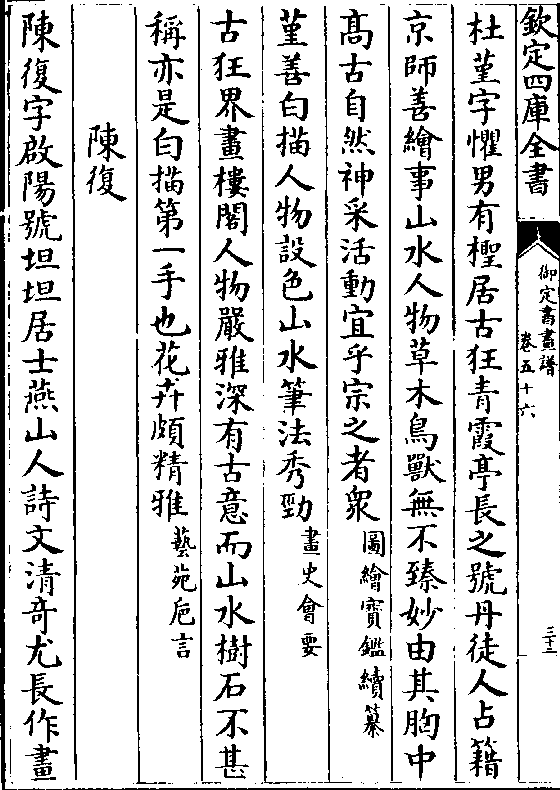 欽定四庫全書
御定書畫譜
卷五十六
三十二
杜堇字懼男有檉居古狂青霞亭長之號丹徒人占籍
京師善繪事山水人物草木鳥獸無不臻妙由其胸中
高古自然神采活動宜乎宗之者衆圖繪寳鑑續纂
堇善白描人物設色山水筆法秀勁畫史會要
古狂界畫樓閣人物嚴雅深有古意而山水樹石不甚
稱亦是白描第一手也花卉頗精雅藝苑巵言
陳復
陳復字啟陽號坦坦居士燕山人詩文清奇尤長作畫